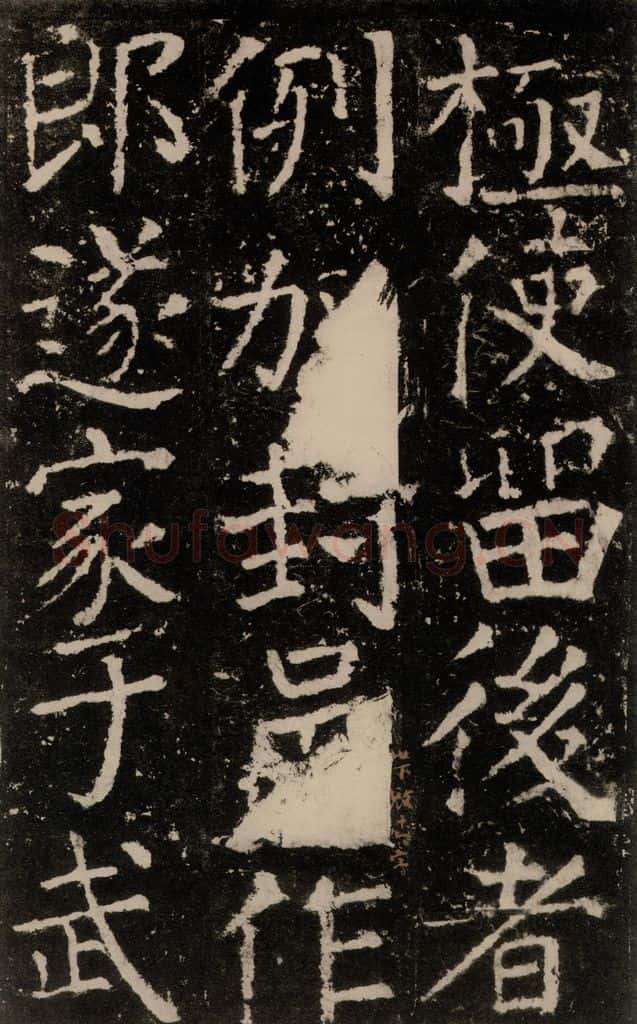 極使留後者
例加封邑作
郎遂家于武
shufawang.CN